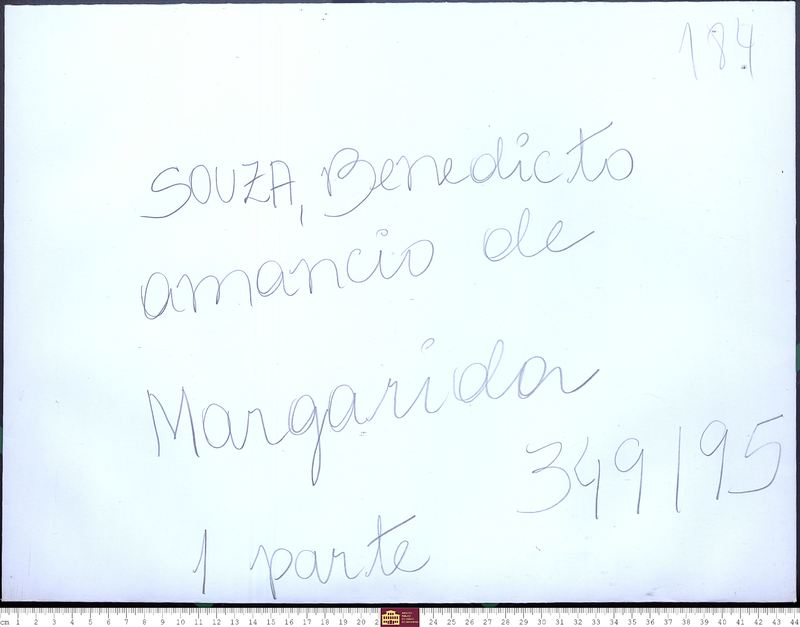 184
SOUZA, Benedicto
amancio de
Margarida
349/95
1 parte
cm 1 2 3 4 5 6 7 8 9 10 11 12 13 14 15 16 17 18 19 20 21 24 25 26 27 28 29 30 31 32 33 34 35 36 37 38 39 40 41 42 43 44